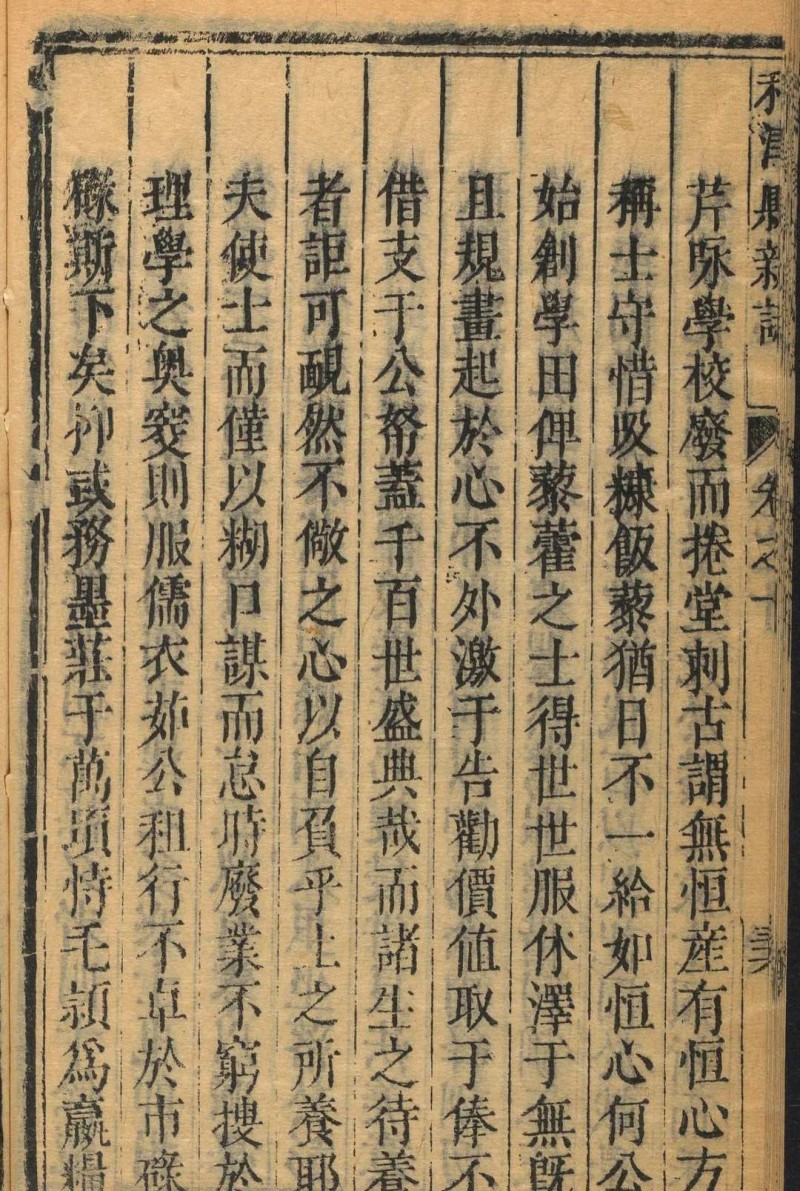 利津縣新誌 卷之十
芹咏學校廢而捲堂刺古謂無恒産有恒心方
稱士守惜吸糠飯藜猶日不一給如恒心何公
始創學田俾藜藿之士得世世服休澤于無旣
且規畫起於心不外激于告勸價值取于俸不
借支于公帑蓋千百世盛典哉而諸生之待養
者詎可靦然不儆之心以自負乎上之所養耶
夫使士而僅以糊口謀而怠時廢業不窮搜於
理學之奥窔則服儒衣茹公租行不卓於市碌
碌斯下矣抑或務墨莊于萬頃恃毛頴爲贏糧